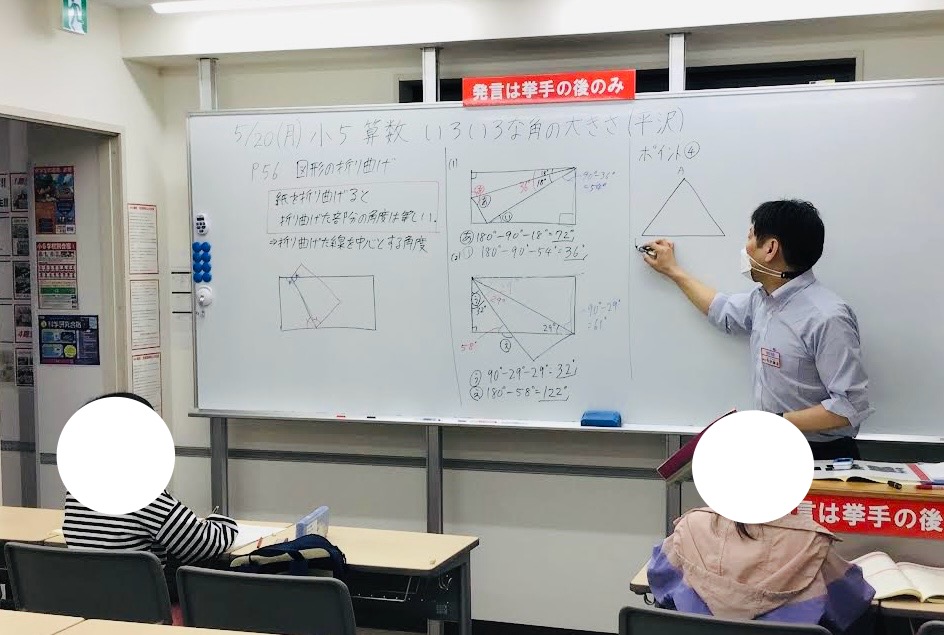 発言は挙手の後のみ
5/20(月) 小5 算数 いろいろな角の大きさ(半沢)
P56 図形の折り曲げ
紙を折り曲げると
折り曲げた部分の角度は等しい.
⇒折り曲げた線を中心とする角度
(1)
36°
18°
あ
い
90°-36°
=54°
あ 180°-90°-18°=72°
(2)
い 180°-90°-54°=36°
29°
32°
29°
58°
=90°-29°
=61°
90°-29°-29°=32°
180°-58°=122°
ポイント④
A
発言は挙手の後